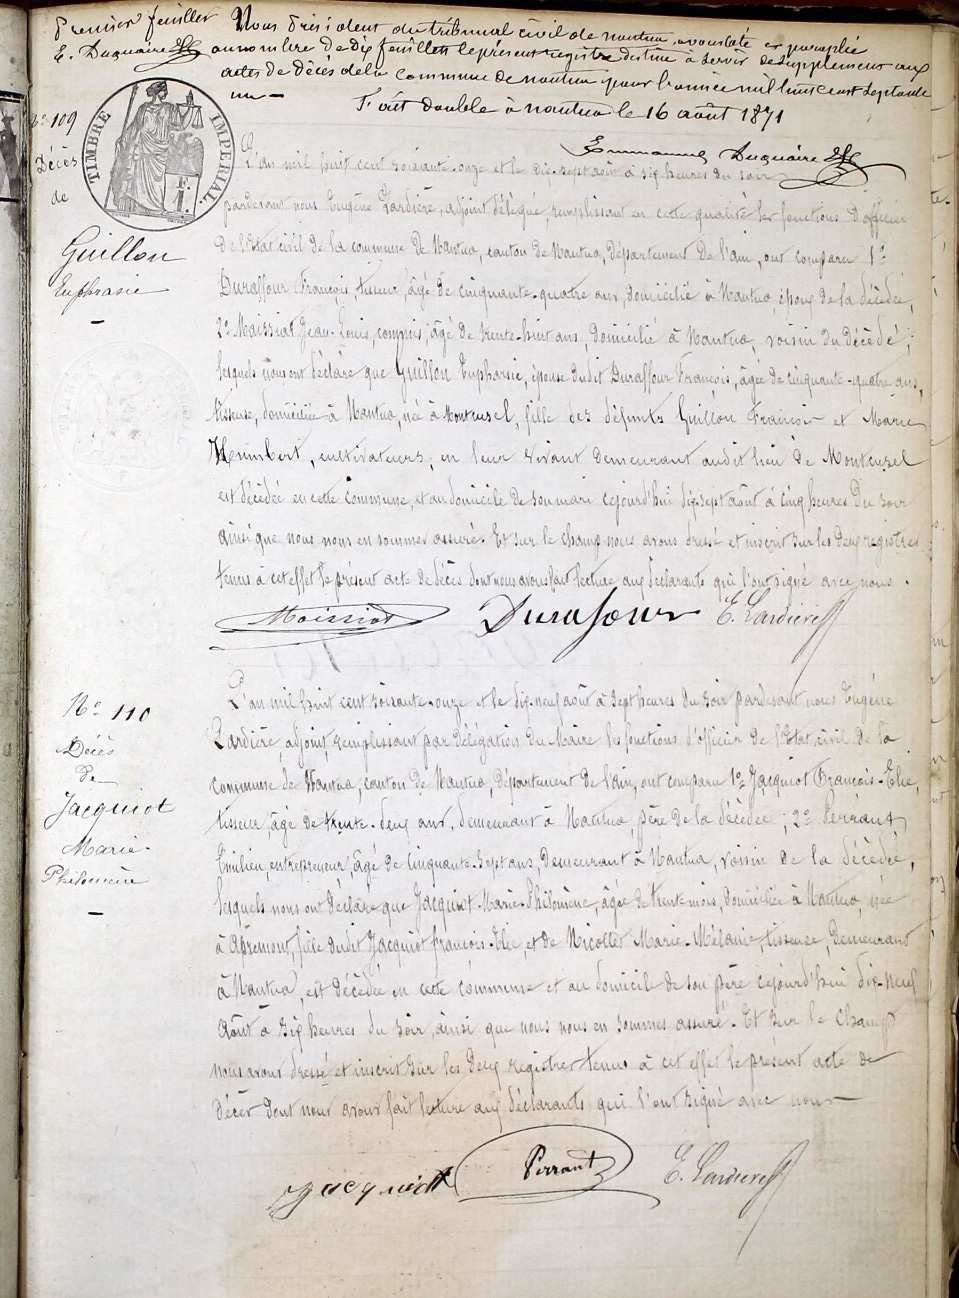 Premier feuillet
E. Duquaire
Nous Président du tribunal civil de nantua, avons coté et paraphé
au nombre de dix feuillets le présent registre destiné à servir de supplément aux
actes de décès de la commune de nantua pour l'année mil huit cent septante
un —
Fait double à nantua le 16 août 1871
Duquaire
TIMBRE IMPERIAL
1 F.
No 109
Décès
de
Guillon
Euphrasie
L'an mil huit cent soixante-onze et le dix-sept août à six heures du soir
pardevant nous Eugène Lardière, adjoint délégué remplissant en cette qualité les fonctions d'officier
de l'état civil de la commune de Nantua, canton de Nantua, département de l'ain, ont comparu 1o
Duraffour François, tisseur, âgé de cinquante-quatre ans, domicilié à Nantua, époux de la décédée,
2o Moissiat Jean-Louis, commis, âgé de trente-huit ans, domicilié à Nantua, voisin du décédé,
lesquels nous ont déclaré que Guillon Euphrasie, épouse dudit Duraffour François, âgée de cinquante-quatre ans,
tisseuse, domiciliée à Nantua, née à Montcusel, fille des défunts Guillon François et Marie
Humbert, cultivateurs, en leur vivant demeurant audit lieu de Montcuzel
est décédée en cette commune, et au domicile de son mari cejourd'hui dix-sept août à cinq heures du soir
ainsi que nous nous en sommes assuré. Et sur le champ nous avons dressé et inscrit sur les deux registres
tenus à cet effet le présent acte de décès dont nous avons fait lecture aux déclarants qui l'ont signé avec nous.
Moissiat Duraffour E. Lardière
No 110
Décès
de
Jacquiot
Marie-
Philomène
L'an mil huit cent soixante-onze et le dix-neuf août à sept heures du soir pardevant nous Eugène
Lardière, adjoint, remplissant par délégation du Maire les fonctions d'officier de l'état civil de la
commune de Nantua, canton de Nantua, département de l'ain, ont comparu 1o Jacquiot François-Elie,
tisseur, âgé de trente-deux ans, demeurant à Nantua, père de la décédée; 2o Perrant
Emilien, entrepreneur, âgé de cinquante-sept ans, demeurant à Nantua, voisin de la décédée,
lesquels nous ont déclaré que Jacquiot Marie-Philomène, âgée de trente mois, domiciliée à Nantua, née
à Apremont, fille dudit Jacquiot françois-Elie, et de Nicollet Marie-Mélanie, tisseuse, demeurant
à Nantua, est décédée en cette commune et au domicile de son père cejourd'hui dix-neuf
août à six heures du soir, ainsi que nous nous en sommes assuré. Et sur le champ
nous avons dressé et inscrit sur les deux registres tenus à cet effet le présent acte de
décès dont nous avons fait lecture aux déclarants qui l'ont signé avec nous —
Jacquiott Perrant E. Lardière